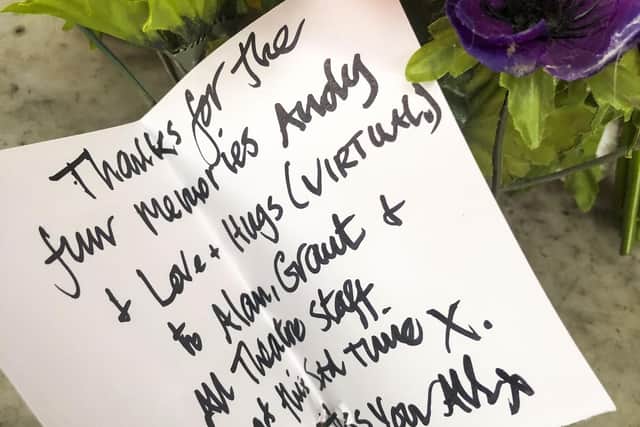 Thanks for the
fun memories Andy
& Love + Hugs (VIRTUAL!)
to Alan, Grant &
All Theatre Staff.
at this Sad Time X.
You All